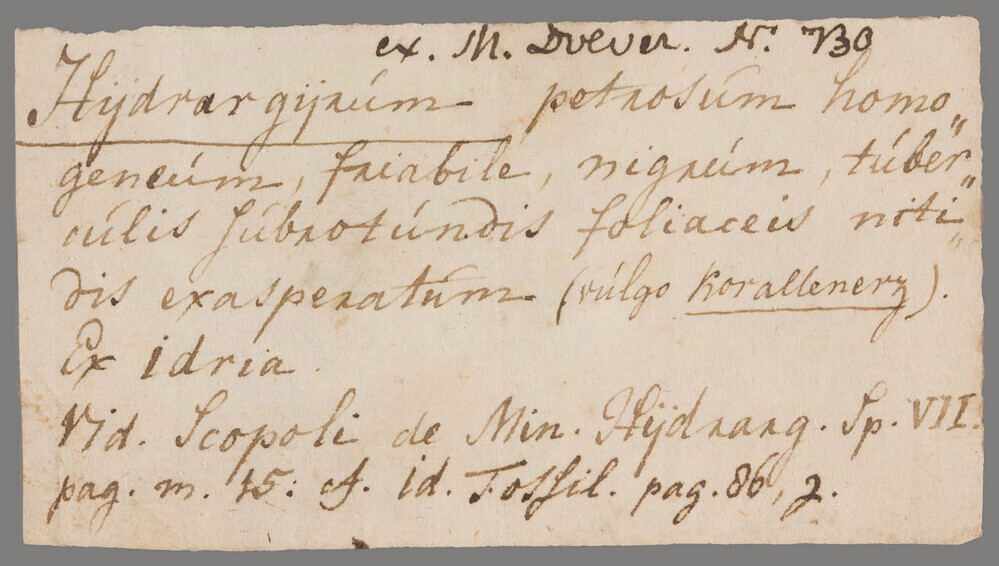 ex. M. Drever. N. 730
Hijdrargijrúm petrosúm homo„
geneúm, friabile, nigrúm, túber„
cúlis súbrotúndis foliaceis niti„
dis exasperatúm (vúlgo Korallenerz).
Ex idria.
Vid. Scopoli de Min. Hÿdrarg. Sp. VII.
pag. m. 45: cf. id. Fossil. pag. 86, 2.